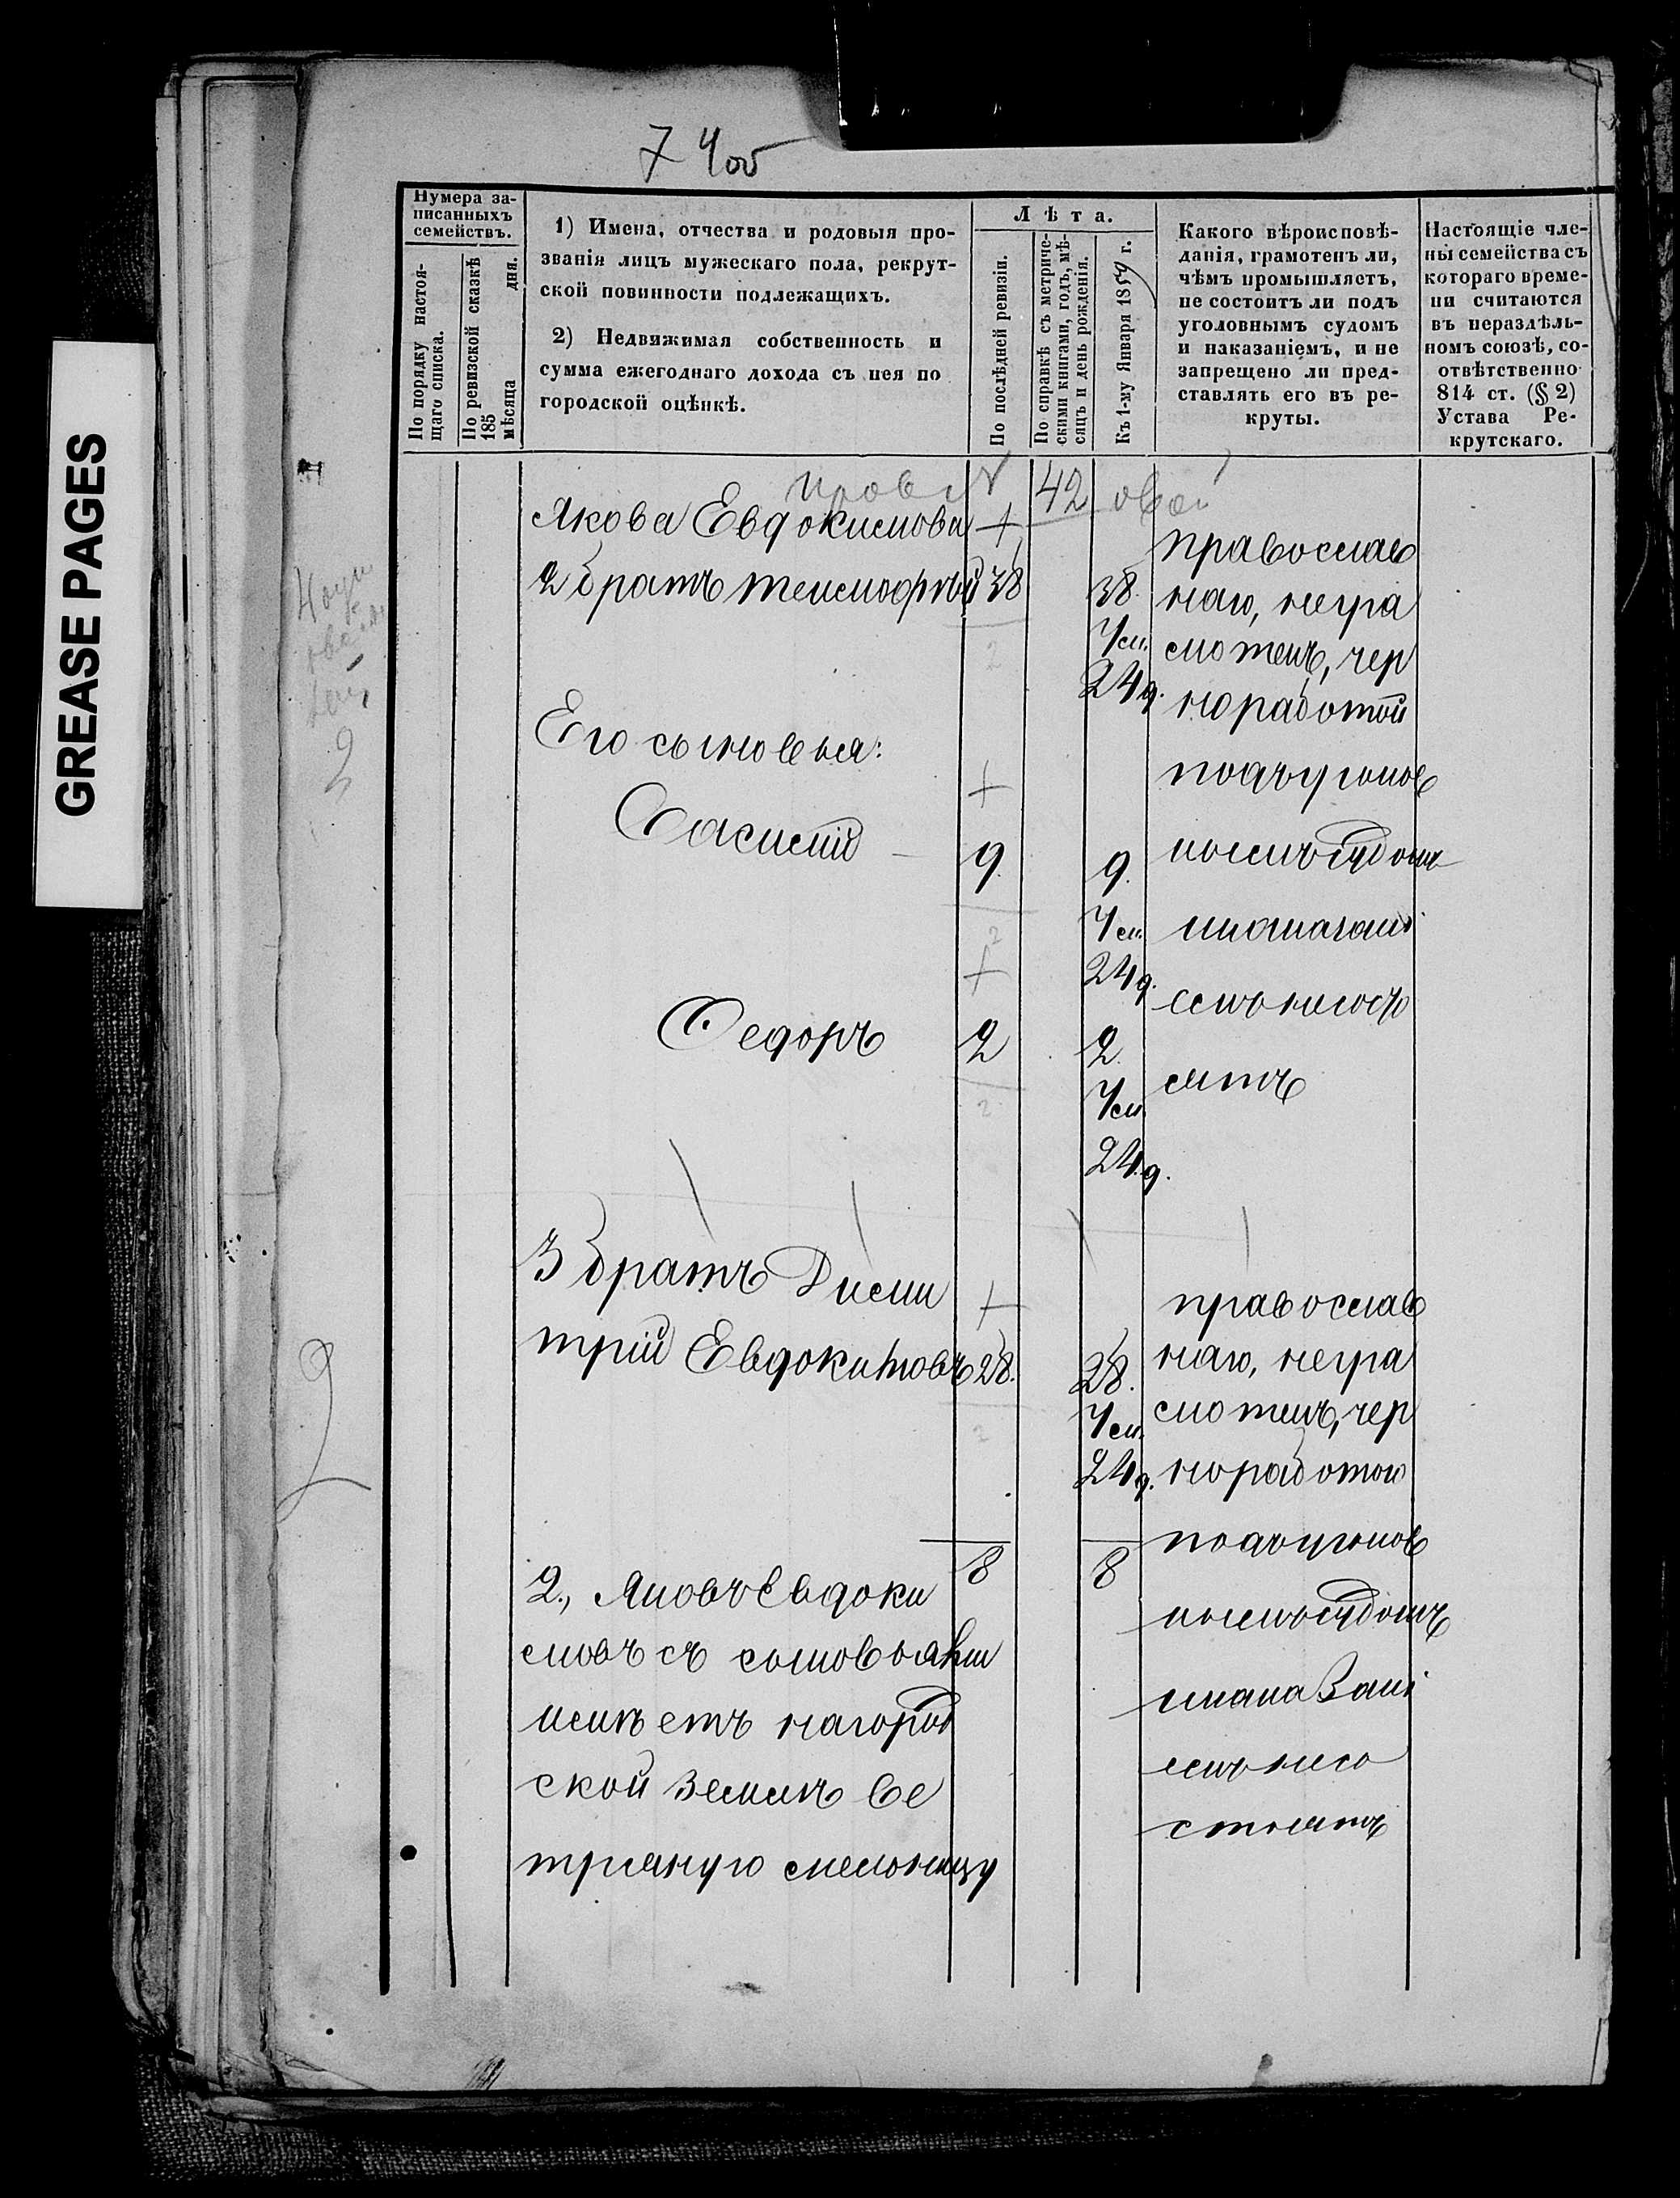 GREASE PAGES
7 400
Нумера за-
писанныхъ
семействъ.
По порядку настоя-
щаго списка.
По ревизской сказкѣ
185
мѣсяца дня.
1) Имена, отчества и родовыя про-
званія лицъ мужескаго пола, рекрут-
ской повинности подлежащихъ.
2) Недвижимая собственность и
сумма ежегоднаго дохода съ нея по
городской оцѣнкѣ.
Лѣта.
По послѣдней ревизіи.
По справкѣ съ метриче-
скими книгами, годъ, мѣ-
сяцъ и день рожденія.
Къ 1-му Января 1859 г.
Какого вѣроисповѣ-
данія, грамотенъ ли,
чѣмъ промышляетъ,
не состоитъ ли подъ
уголовнымъ судомъ
и наказаніемъ, и не
запрещено ли пред-
ставлять его въ ре-
круты.
Настоящіе чле-
ны семейства съ
котораго време-
ни считаются
въ нераздѣль-
номъ союзѣ, со-
отвѣтственно
814 ст. (§ 2)
Устава Ре-
крутскаго.
42
Якова Евдокимова +
2 братъ Тимофѣй 38 38.
7 м.
24 д.
православ
наго, негра
мотенъ, чер
норабочій
подъуголов
нымъ судомъ
Его сыновья:
+
Василій 9. 9.
7 м.
24 д.
инаказані
емъ несос
+
Федоръ 2 2.
7 м.
24 д.
3 братъ Дими
трій Евдокимовъ 28. 28.
7 м.
24 д.
+
православ
наго, негра
мотенъ, чер
подъуголов
нымъ судомъ
инаказані
емъ несо
стоятъ
8 8
2., Яковъ Евдоки
мовъ съ сыновьями
имѣетъ нагород
ской землѣ ве
тряную мельницу
2
2